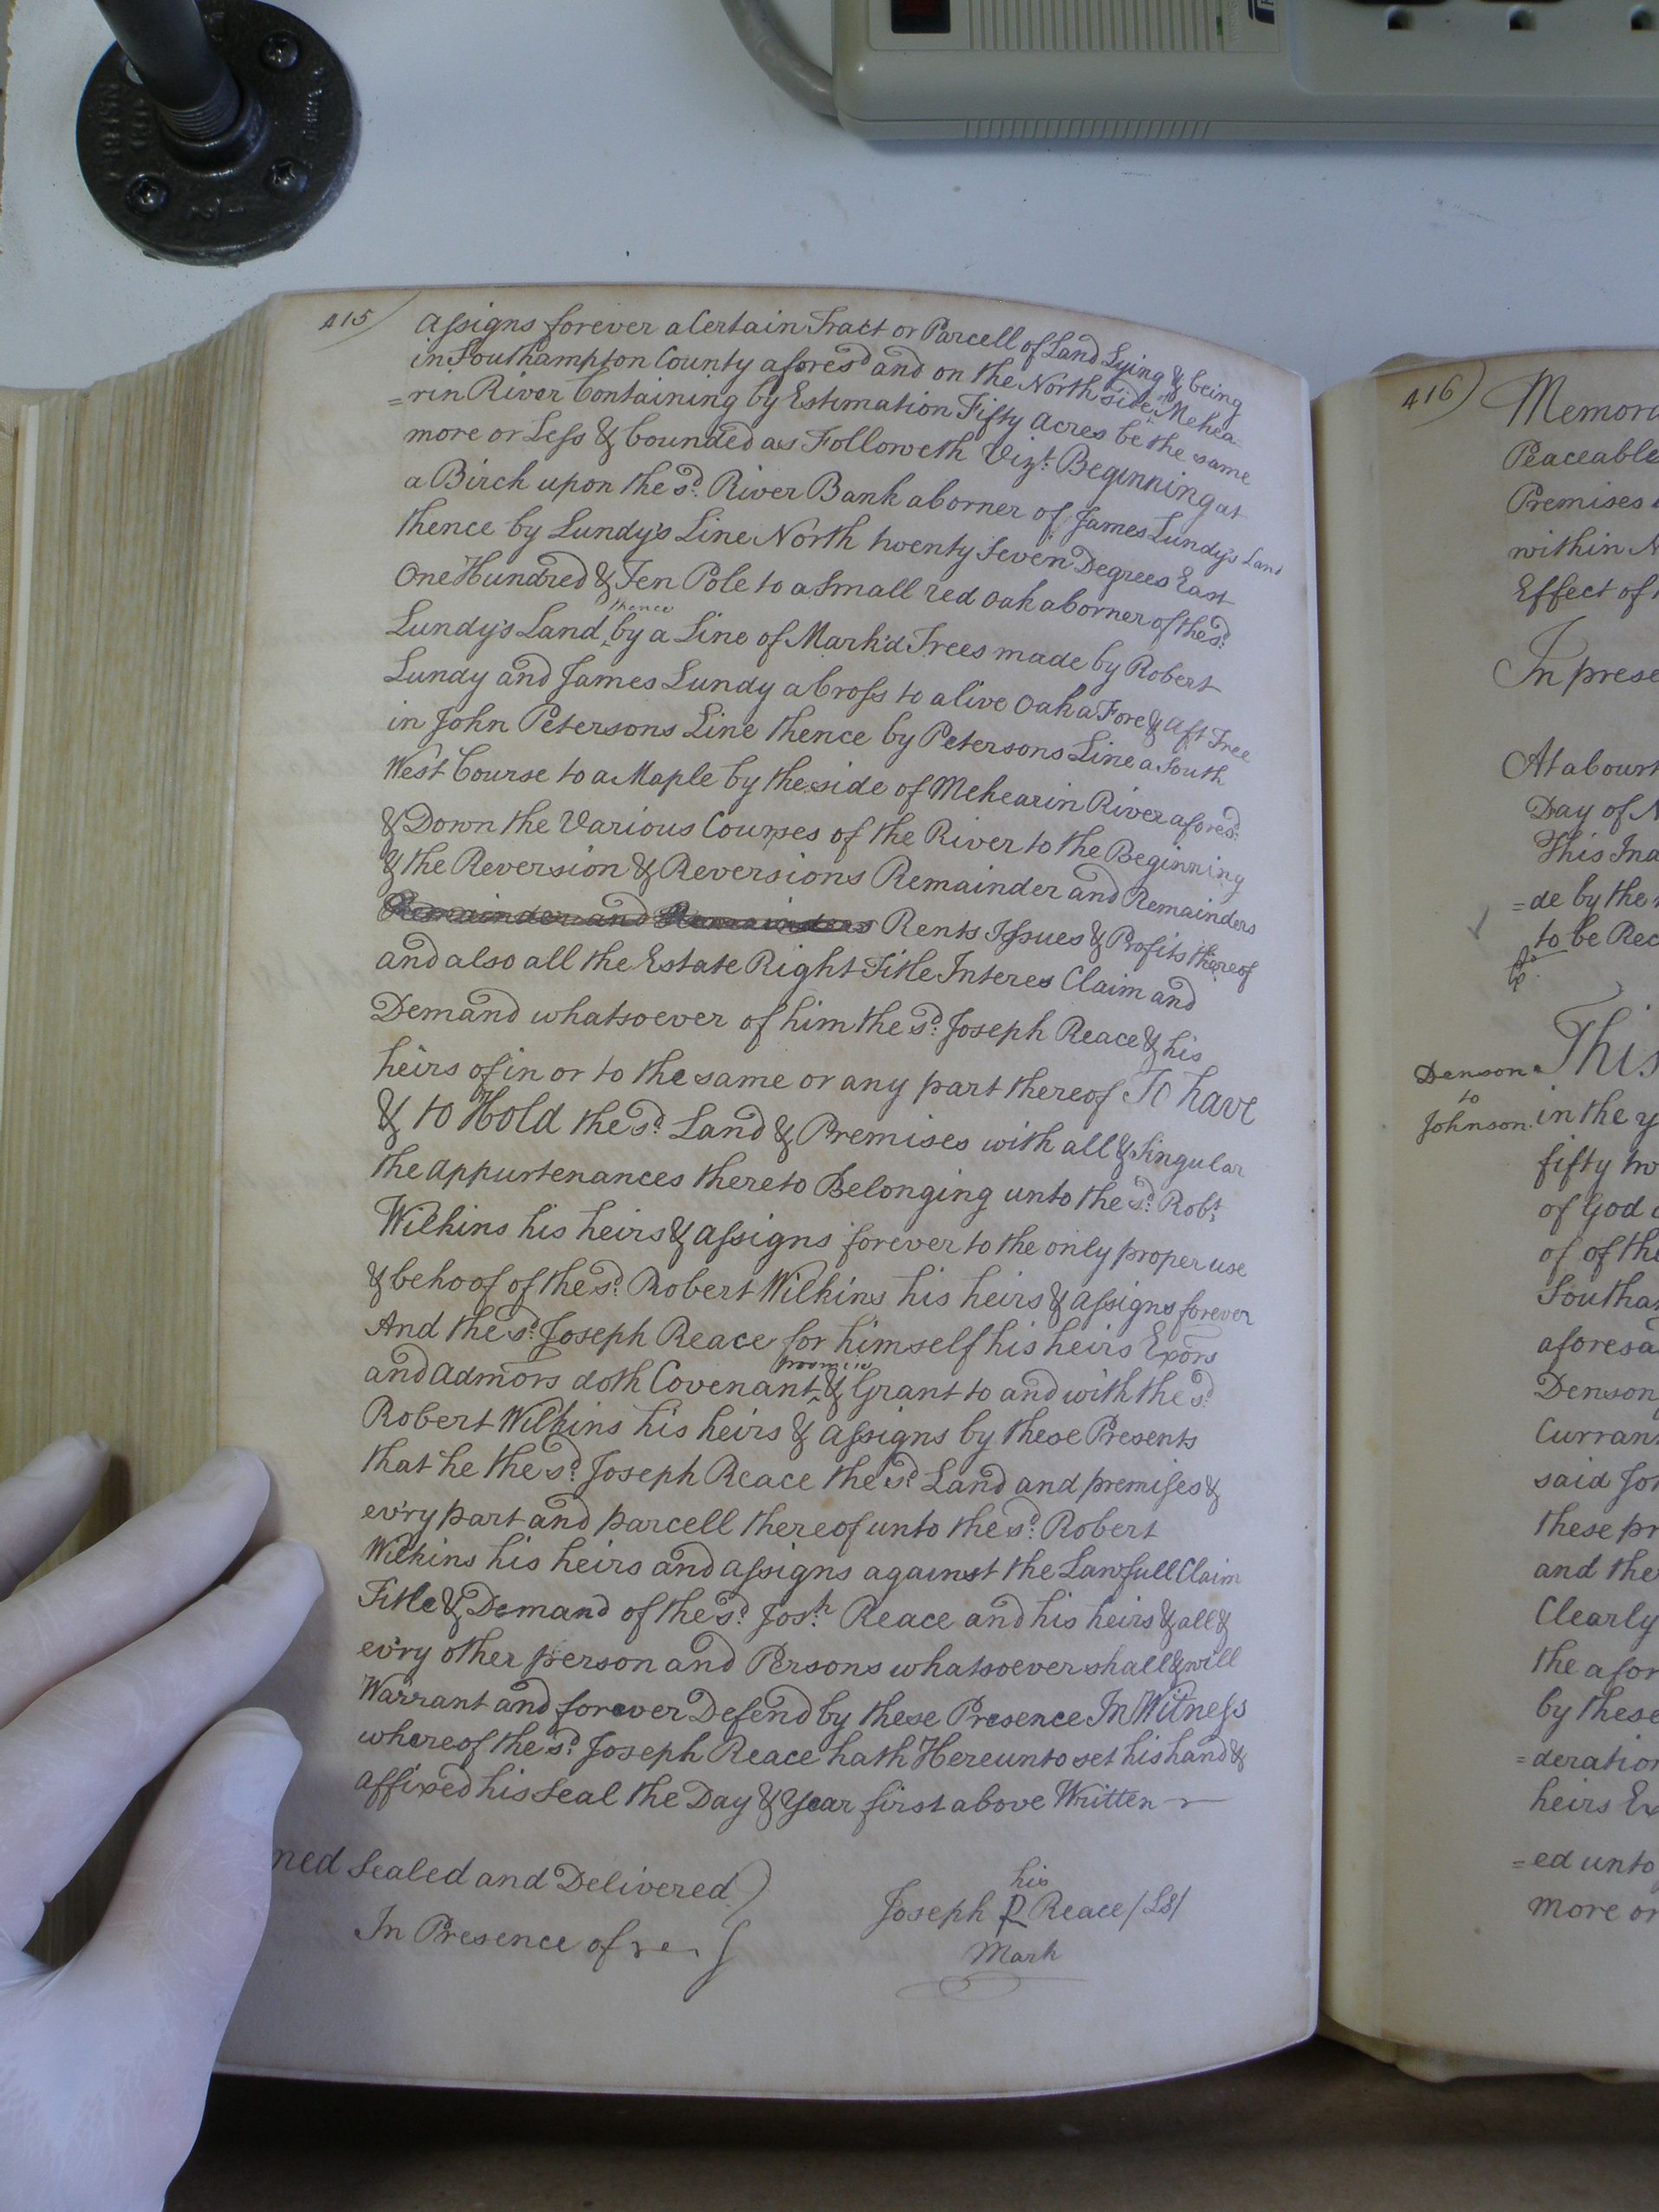 415)
Assigns forever a Certain Tract or Parcell of Land Lying & being
in Southampton County afores.d and on the North side Mehea-
=rin River Containing by Estimation Fifty Acres be the same
more or Less & bounded as Followeth Viz.t Beginning at
a Birch upon the s.d River Bank a Corner of James Lundy's Land
thence by Lundy's Line North twenty Seven Degrees East
One Hundred & Ten Pole to a Small red Oak a Corner of the s.d
Lundy's Land ^thence by a Line of Mark'd Trees made by Robert
Lundy and James Lundy a Cross to a live Oak a Fore & Aft Tree
in John Petersons Line thence by Petersons Line a South
West Course to a Maple by the side of Mehearin River afores.d
& Down the Various Courses of the River to the Beginning
& the Reversion & Reversions Remainder and Remainders
Remainder and Remainders Rents Issues & Profits thereof
and also all the Estate Right Title Interes Claim and
Demand whatsoever of him the s.d Joseph Reace & his
heirs of in or to the same or any part thereof To have
& to Hold the s.d Land & Premises with all & Singular
the Appurtenances thereto Belonging unto the s.d Rob.t
Wilkins his heirs & Assigns forever to the only proper use
& behoof of the s.d Robert Wilkins his heirs & Assigns forever
And the s.d Joseph Reace for himself his heirs Exors
and Admors doth Covenant ^promis & Grant to and with the s.d
Robert Wilkins his heirs & Assigns by these Presents
that he the s.d Joseph Reace the s.d Land and premises &
ev'ry part and parcell thereof unto the s.d Robert
Wilkins his heirs and Assigns against the Lawfull Claim
Title & Demand of the s.d Jos.h Reace and his heirs & all &
ev'ry other person and Persons whatsoever shall & will
Warrant and forever Defend by these Presence In Witness
whereof the s.d Joseph Reace hath Hereunto set his hand &
Affixed his Seal the Day & Year first above Written
ned Sealed and Delivered
In Presence of
his
Joseph R Reace /LS/
Mark
416)
Memora
Peaceable
Premises
within
Effect of
In prese
At a Court
Day of N
This Ind
=de by the
to be Rec
Denson
to
Johnson
This
in the y
fifty tw
of God
of of the
Southam
aforesa
Denson
Curran
said Jo
these pr
and the
Clearly
the afor
by these
=deration
heirs Ex
=ed unto
more or